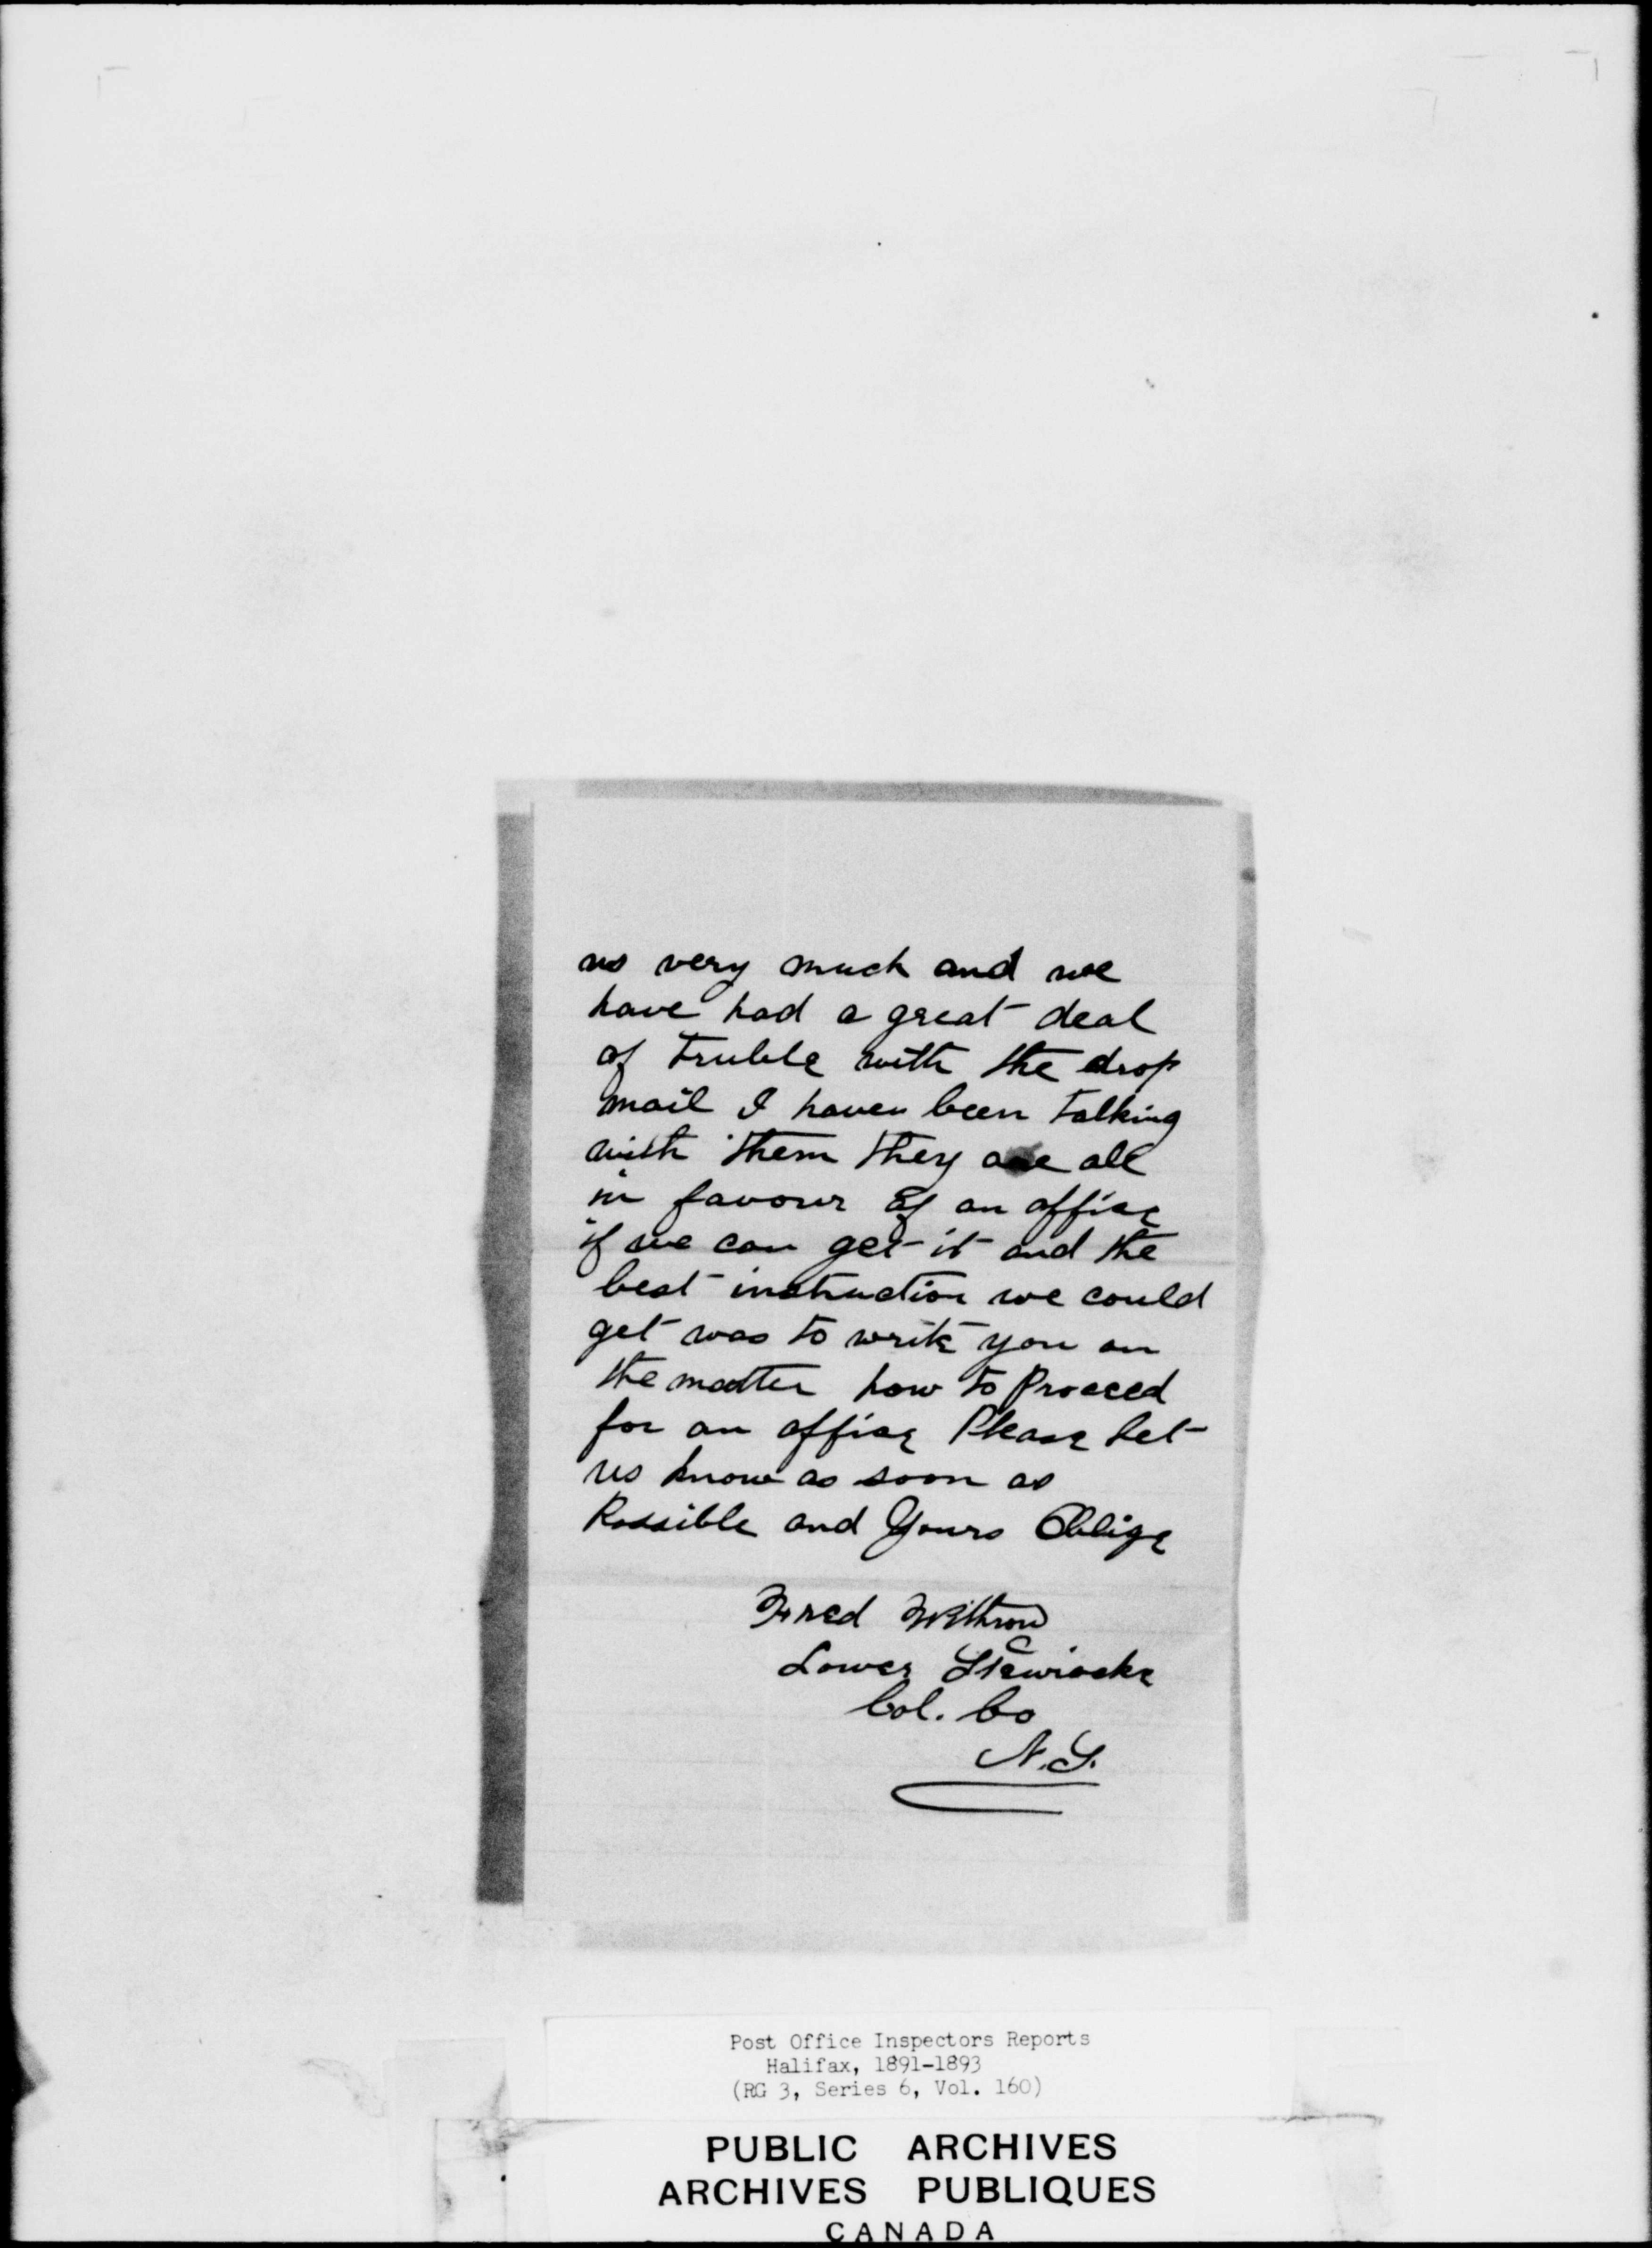 us very much and we
have had a great deal
of truble with the drop
mail I haven been talking
with them they are all
in favour of an office
if we can get it and the
best instruction we could
get was to write you on
the matter how to Proceed
for an office Please Let
us know as soon as
Possible and Yours Oblige
Fred Withrow
Lower Stewiacke
Col. Co
N.S.
Post Office Inspectors Reports
Halifax, 1891-1893
(RG 3, Series 6, Vol. 160)
PUBLIC ARCHIVES
ARCHIVES PUBLIQUES
CANADA